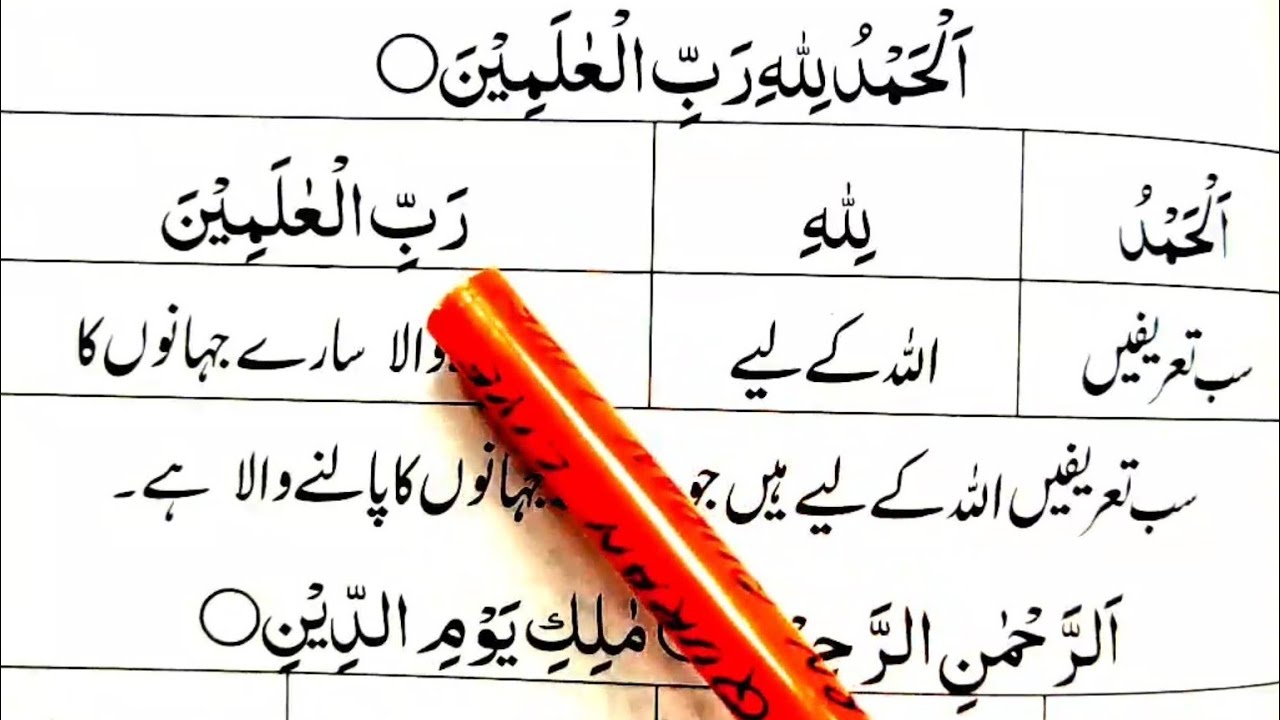 اَلْحَمْدُ لِلّٰهِ رَبِّ الْعٰلَمِيْنَ
اَلْحَمْدُ لِلّٰهِ رَبِّ الْعٰلَمِيْنَ
سب تعریفیں اللہ کے لیے والا سارے جہانوں کا
سب تعریفیں اللہ کے لیے ہیں جو جہانوں کا پالنے والا ہے۔
اَلرَّحْمٰنِ مٰلِكِ يَوْمِ الدِّيْنِ